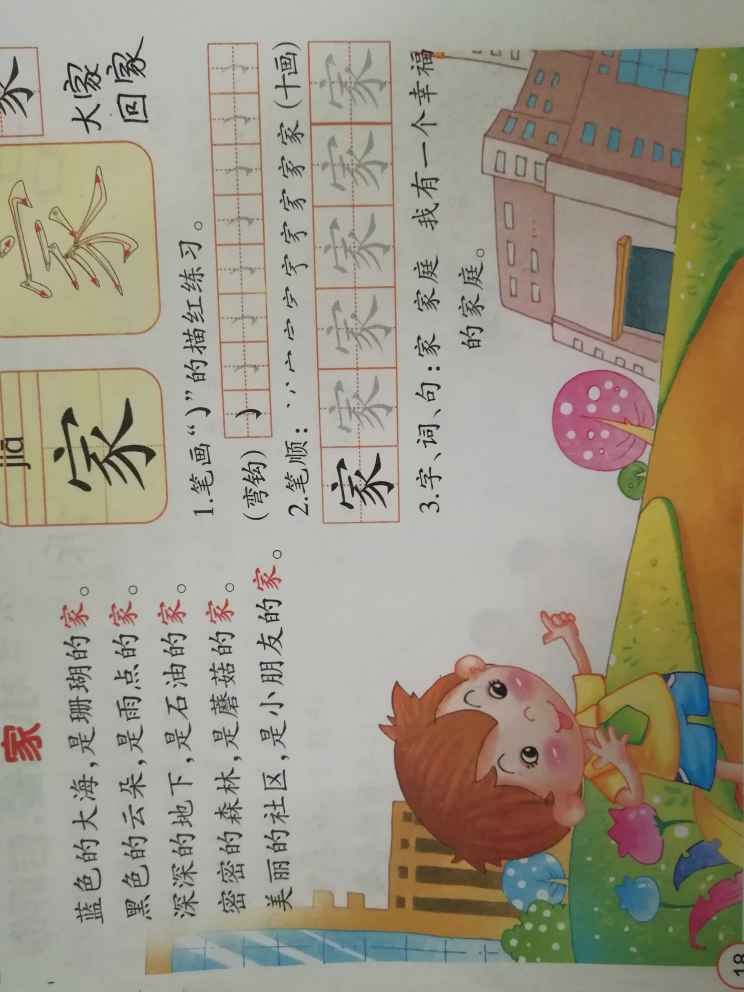 家
蓝色的大海，是珊瑚的家。
黑色的云朵，是雨点的家。
深深的地下，是石油的家。
密密的森林，是蘑菇的家。
美丽的社区，是小朋友的家。
jiā
家
家
家
大家
回家
1.笔画“㇁”的描红练习。
(弯钩) ㇁ ㇁ ㇁ ㇁ ㇁ ㇁ ㇁ ㇁
2.笔顺：家(十画)
家 家 家 家 家 家
3.字、词、句：家 家庭 我有一个幸福
的家庭。
18